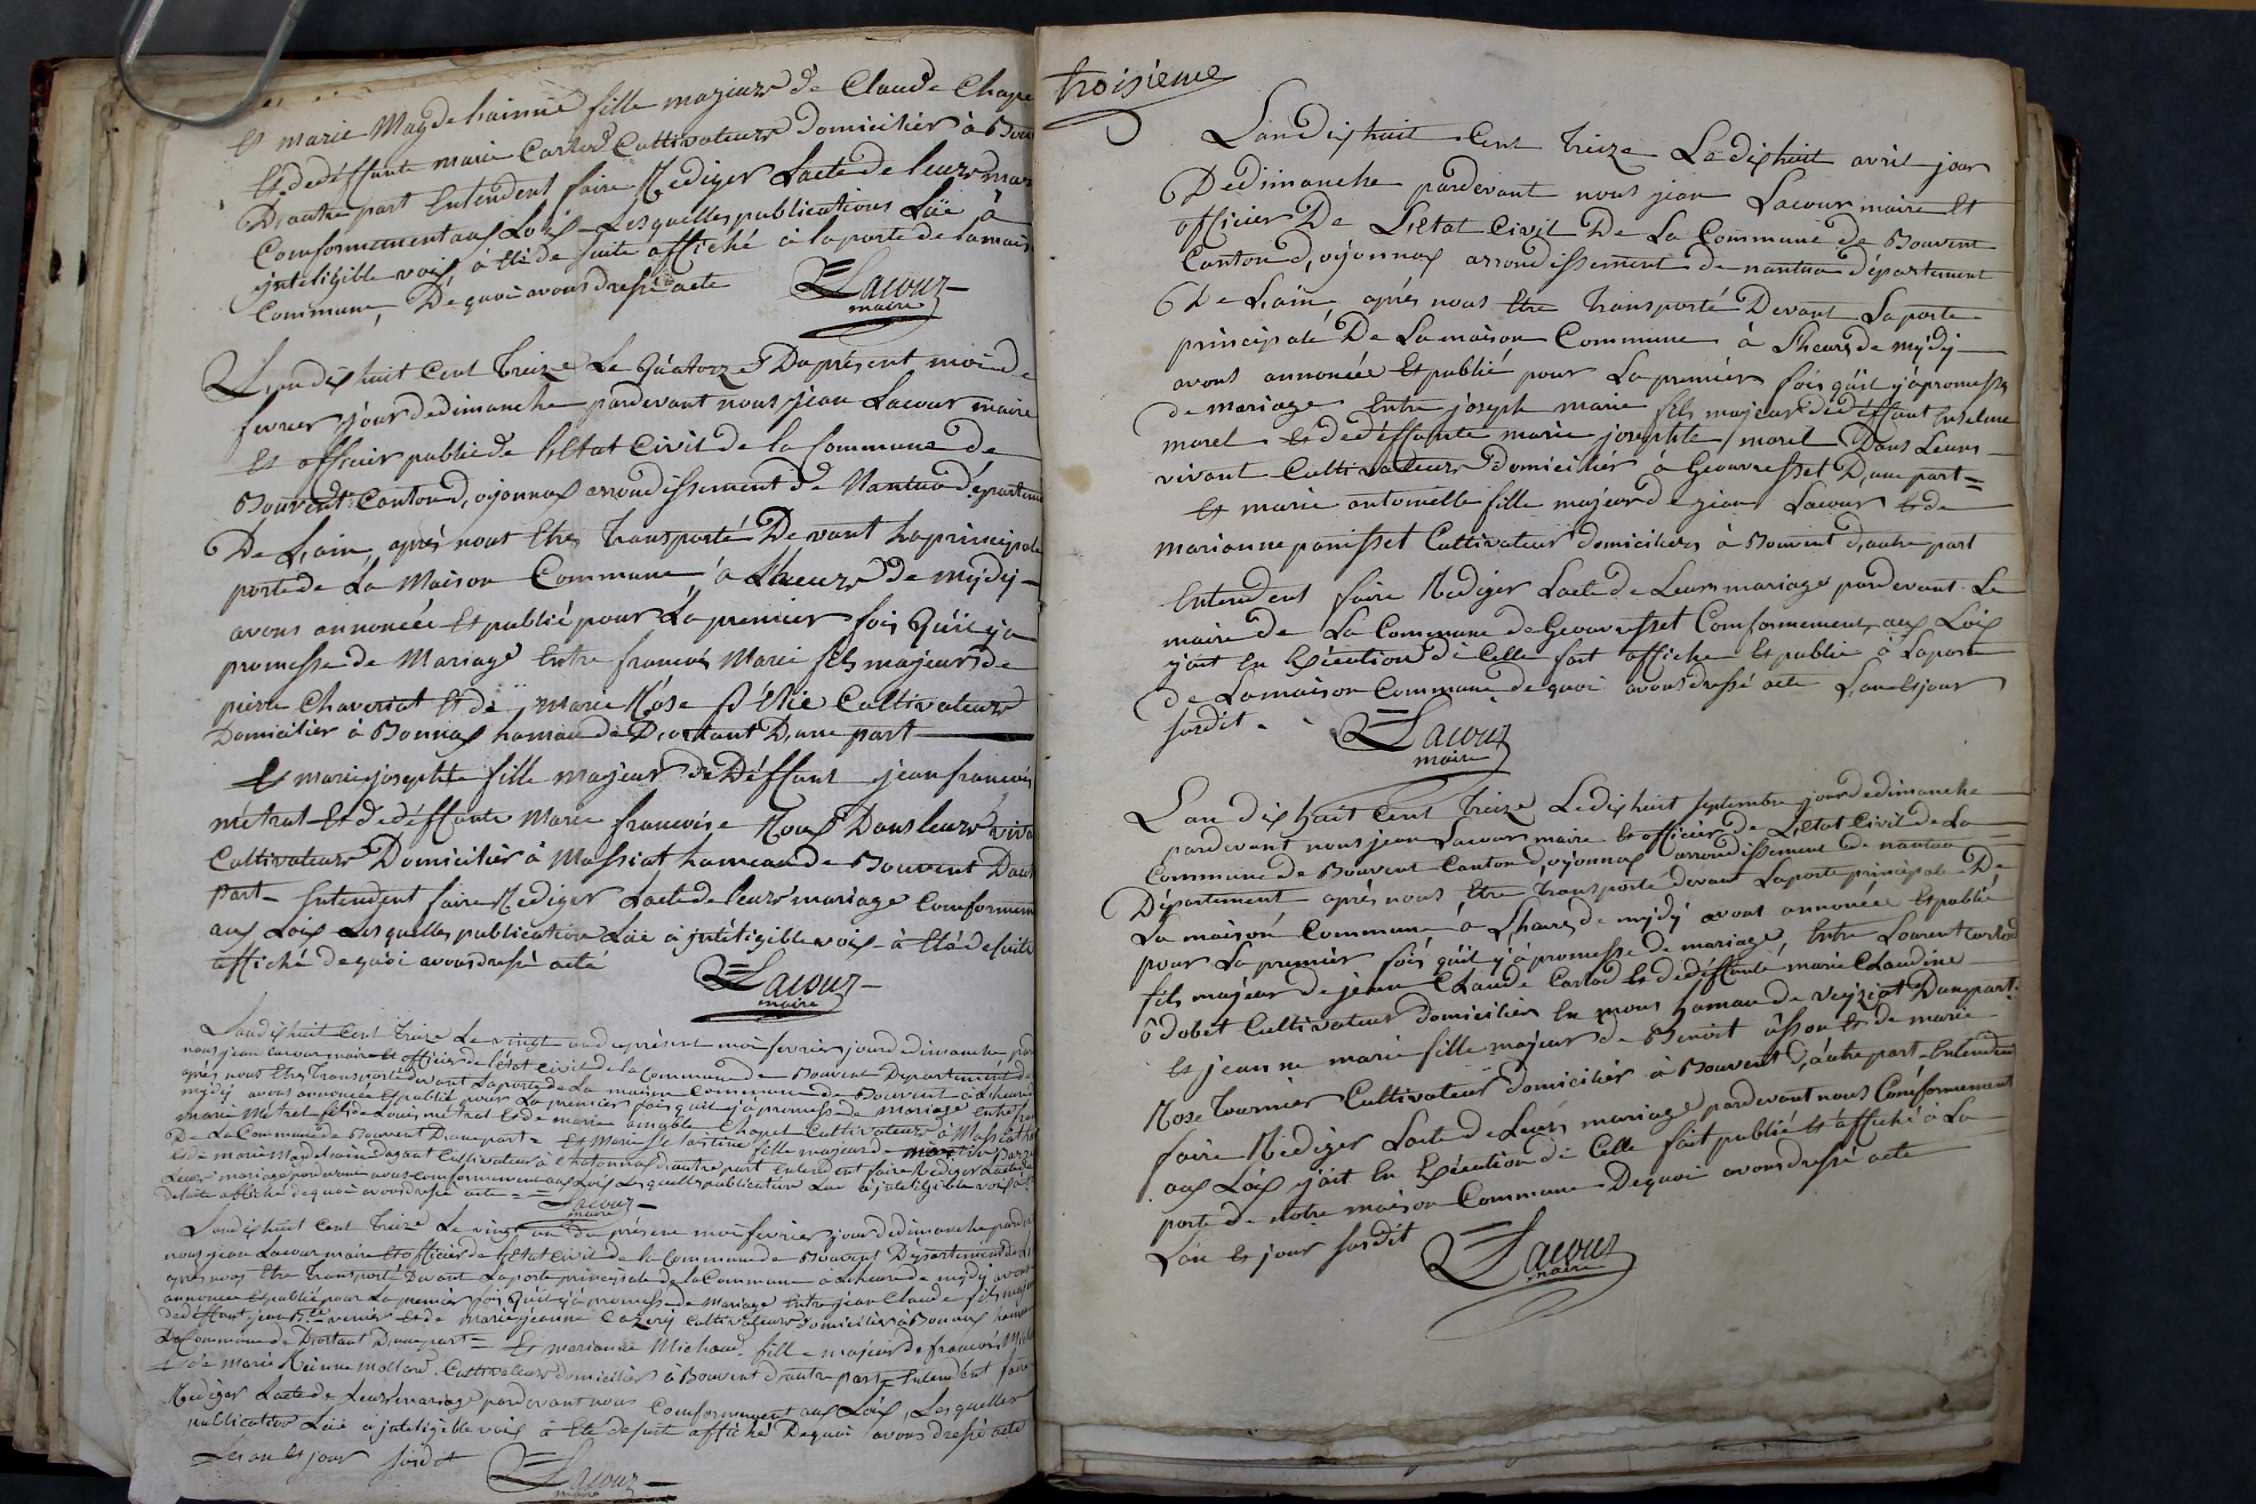 Et marie Magdelainne fille majeure de Claude Chape
Et dedéffunte marie Carlod Cultivateurs domicilier à Bou
D'autre part Entendent faire Rediger Lacte de leurs mar
Comformement aux Loix Lesquelles publications Lüe à
jnteligible voix à Eté de suite affiché à la porte de la mais
Commune, De quoi avons dressé acte
Lacour
maire
L'an dix huit Cent treize Le Quatorze Du présent mois de
fevrier jour de dimanche pardevant nous jean Lacour maire
Et officier public de l'Etat Civil de la Commune de
Bouvent Canton d'oyonnax arrondissement de Nantua départeme
De L'ain, après nous Etre transporté Devant la principale
porte de La Maison Commune à L'heure de mydy
avons annoncée Et publié pour La premier fois Qu'il y a
promesse de Mariage Entre francois Marie fils majeurs de
pierre Chaveriat Et de marie Rose Cultivateurs
Domicilier à Bonnax hamau de Dortant D'une part
Et marie josephte fille majeur de Déffunt jean francois
métral Et de déffunte Marie francoise Roux Dans leurs viva
Cultivateurs Domicilier à Massiat hameau de Bouvent Daut
part Entendent faire Rediger Lacte de leurs mariage Comformem
aux Loix Lesquelles publication Lüe à jntéligible voix à Eté de suite
affiché de quoi avons dressé acte
Lacour
maire
L'an dix huit Cent treize Le vingt un du présent mois fevrier jour de dimanche pard
nous jean Lacour maire Et officier de l'état Civil de la Commune de Bouvent Département de
après nous Etre transporté devant La porte de La maison Commune de Bouvent à L'heure
mydy avons annoncée Et publié pour La premier fois qu'il y à promesse de mariage Entre
marie Métral fils de Louis métral Et de marie amable Chapel Cultivateurs à Massiat
De La Commune de Bouvent D'une part Et Marie fille majeur de
Et de marie Magdelaine Cultivateurs à Chatonnax d'autre part Entendent faire Rediger Lacte de
Leurs mariage pardevant nous Comformement aux Loix Lesquelles publication Lue à jnteligible voix
de suite affiché de quoi avons dressé acte
Lacour
maire
L'an dix huit Cent treize Le vingt un du présent mois fevrier jour de dimanche pardev
nous jean Lacour maire Et officier de l'Etat Civil de la Commune de Bouvent Département de
après nous Etre transporté Devant La porte principale de la Commune à L'heure de mydy avons
annoncée Et publié pour La premier fois Qu'il y à promesse de Mariage Entre jean Claude fils maje
de déffunt jean Bte vernier Et de marie jeanne Cazery Cultivateurs domicilier à Bonnax hamau
De La Commune de Dortant D'une part Et marianne Michaud fille majeur de francois
Et de marie Reinne mollard Cultivateurs domicilier à Bouvent d'autre part Entendent faire
Rediger Lacte de Leurs mariage pardevant nous Comformement aux Loix, Lesquelles
publication Lüe à jnteligible voix à Eté de suite affiché De quoi avons dressé acte
Les an Et jour susdit
Lacour
maire
troisieme
L'an dix huit Cent treize Le dix huit avril jour
De dimanche pardevant nous jean Lacour maire Et
officier De L'Etat Civil De La Commune de Bouvent
Canton d'oyonnax arrondissement de nantua département
De L'ain, après nous Etre transporté Devant La porte
principale De La maison Commune à L'heure de mydy
avons annoncée Et publié pour La premier fois qu'il y à promesse
de mariage Entre joseph marie fils majeur de déffunt Enselme
morel Et de déffunte marie josephte morel Dans Leurs
vivant Cultivateurs domicilier à Geovresset D'une part
Et marie antoinette fille majeur de jean Lacour Et de
marianne panisset Cultivateur domiciliers à Bouvent d'autre part
Entendent faire Rediger Lacte de Leurs mariage pardevant Le
maire de La Commune de Geovresset Comformement aux Loix
y'ait En Exécution di Celle fait affiche Et publié à La porte
de La maison Commune de quoi avons dressé acte L'an Et jour
susdit.
Lacour
maire
L'an dix huit Cent treize Le dix huit septembre jour de dimanche
pardevant nous jean Lacour maire Et officier de L'Etat Civil de La
Commune de Bouvent Canton d'oyonnax arrondissement de nantua
Département après nous Etre transporté devant La porte principale De
La maison Commune à L'heure de mydy avons annoncée Et publié
pour La premier fois qu'il y à promesse de mariage, Entre Laurent Carlod
fils majeur de jean Claude Carlod Et de déffunte marie Claudine
ôdobet Cultivateurs domicilier En mons hamau de veyziat D'une part
Et jeanne marie fille majeur de Benoit Et de marie
Rose tournier Cultivateur domicilier à Bouvent d'autre part Entendent
faire Rédiger Lacte de Leurs mariage pardevant nous Comformement
aux Loix y'ait En Exécution di Celle fait publié Et affiché à La
porte de notre maison Commune De quoi avons dressé acte
L'an Et jour susdit
Lacour
maire